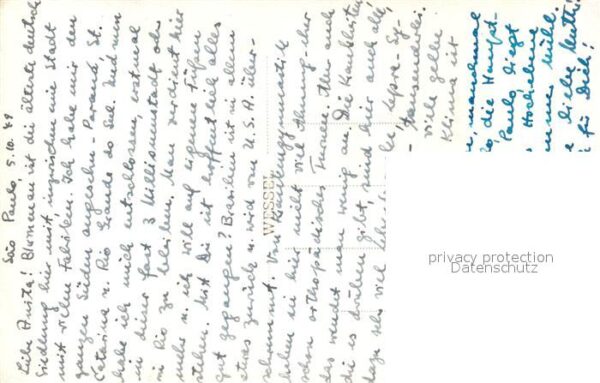 São Paulo, 5.10.49
Liebe Anita! Blumenau ist die älteste deutsche
Siedlung hier mit, inzwischen eine Stadt
mit vielen Fabriken. Ich habe mir den
ganzen Süden angesehen - Paraná, St.
Catarina u. Rio Grande do Sul. Und nun
habe ich mich entschlossen, erst mal
in dieser fast 3 Millionenstadt oder
in Rio zu bleiben. Man verdient hier
mehr u. ich will auf eigenen Füßen
stehen. Mit Dir ist hoffentlich alles
gut gegangen? Brasilien ist in allem
etwas zurück u. wird von U.S.A. über-
schwemmt. Von Krankengymnastik
haben sie hier nicht viel Ahnung - eher
schon orthopädisch Turnen. Aber auch
das wendet man wenig an. Die Krankheiten
die es drüben gibt, sind hier auch all,
dazu noch viel
Lepra
viele gelbe
Klima ist
manchmal
die Haupt-
Paulo liegt
Hochebene
kühl.
liebe
für Dich!
WESSEL
privacy protection
Datenschutz